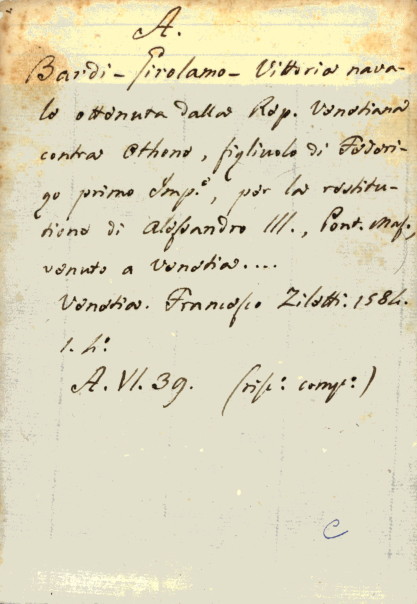 A.
Bardi - Girolamo - Vittoria nava-
le ottenuta dalla Rep. Venetiana
contra Othone, figliuolo di Federi-
go primo Imp.e, per la restitu-
tione di Alessandro III., Pont. Mas.,
venuto a Venetia....
Venetia. Francesco Ziletti. 1584.
1. 4º
A. VI. 39. (risc.º comp.º)
C